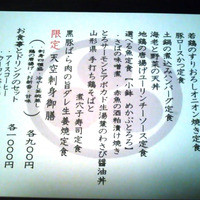 若鶏のすりおろしオニオン焼き定食
豚ロースかつ定食
土鍋の煮込みハンバーグ定食
海老と野菜の天丼
地鶏の唐揚げユーリンチーソース定食
選べる魚定食【小鉢 めかぶとろろ】
・さばの味噌煮 ・赤魚の酒粕漬け焼き
とろサーモンとアボカド生湯葉のわさび醤油丼
山形県 手打ち鶏そばと
煮穴子寿司定食
黒豚ばら肉の旨ダレ生姜焼定食
限定 天空刺身御膳
各九〇〇円
各一〇〇〇円
お食事とドリンクのセット
・アイスコーヒー